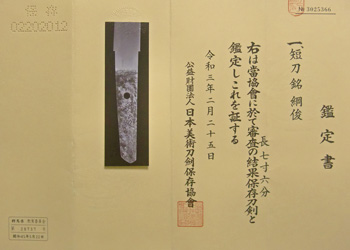 No 3025366
鑑定書
一、短刀 銘 綱俊
長七寸六分
右は當協會に於て審査の結果保存刀剣と
鑑定しこれを証する
令和三年二月二十五日
公益財団法人 日本美術刀剣保存協會
保存
02202012